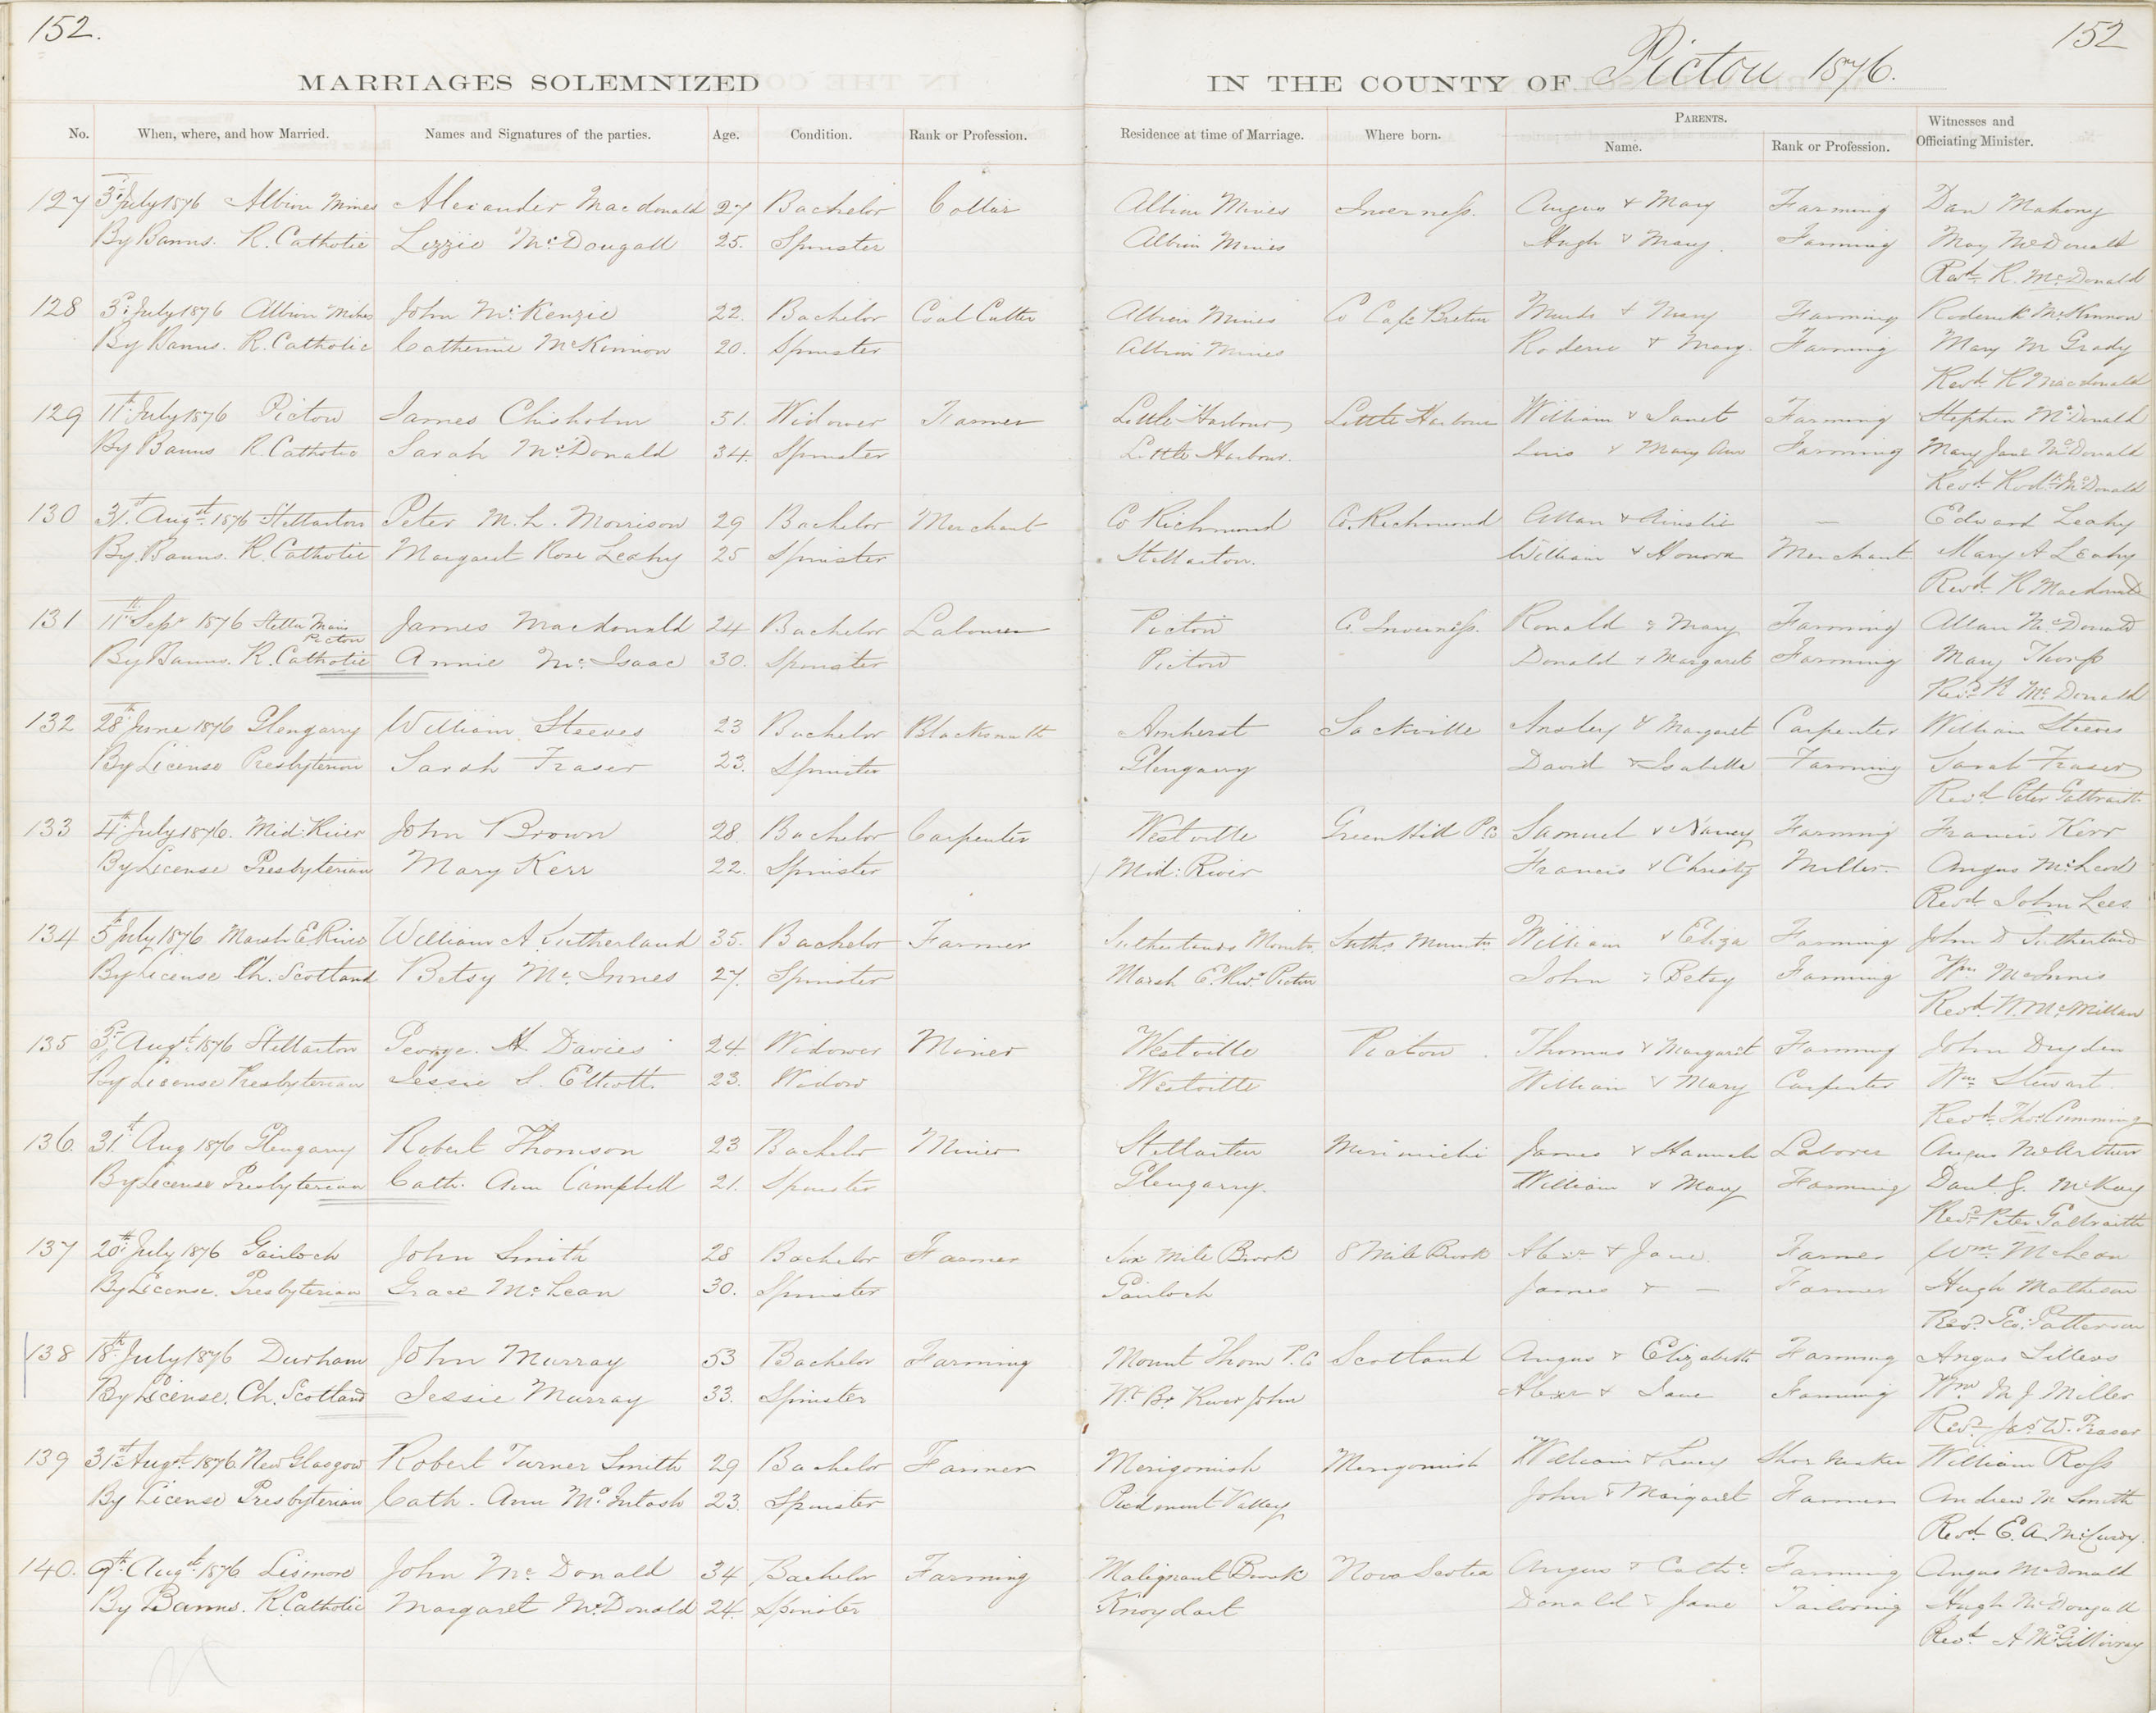 152.
152
MARRIAGES SOLEMNIZED IN THE COUNTY OF Pictou 1876.
No. When, where, and how Married. Names and Signatures of the parties. Age. Condition. Rank or Profession. Residence at time of Marriage. Where born. PARENTS. Name. Rank or Profession. Witnesses and Officiating Minister.
127 3d July 1876 Albion Mines Alexander Macdonald 27 Bachelor Collier Albion Mines Inverness. Angus & Mary Farming Dan Mahony
By Banns. R. Catholic Lizzie McDougall 25. Spinster Albion Mines Hugh & Mary. Farming May McDonald
Revd. R. McDonald
128 3d July 1876 Albion Mines John McKenzie 22. Bachelor Coal Cutter Albion Mines Co Cape Breton & Mary Farming Roderick McKinnon
By Banns. R. Catholic Catherine McKinnon 20. Spinster Albion Mines Roderic & Mary. Farming Mary McGrady
Revd R Macdonald
129 11th July 1876 Pictou James Chisholm 51. Widower Farmer Little Harbour Little Harbour William & Janet Farming Stephen McDonald
By Banns R. Catholic Sarah McDonald 34. Spinster Little Harbour. & Mary Ann Farming Mary Jane McDonald
Revd. Rodk. McDonald
130 31st Augst. 1876 Stellarton Peter M. L. Morrison 29 Bachelor Merchant Co Richmond Co. Richmond Allan & Ainslie — Edward Leahy
By Banns. R. Catholic Margaret Rose Leahy 25 Spinster Stellarton. William & Honora Merchant Mary A Leahy
Revd. R Macdonald
131 11th Sepr 1876 Stella Maris Pictou James Macdonald 24 Bachelor Labourer Pictou C. Inverness. Ronald & Mary Farming Allan McDonald
By Banns. R. Catholic Annie McIsaac 30. Spinster Pictou Donald & Margaret Farming Mary Thorp
Revd. R McDonald
132 28th June 1876 Glengarry William Steeves 23 Bachelor Blacksmith Amherst Sackville Ansley & Margaret Carpenter William Steeves
By License Presbyterian Sarah Fraser 23. Spinster Glengarry David & Isabella Farming Sarah Fraser
Revd. Peter Galbraith
133 4th July 1876. Mid: River John Brown 28. Bachelor Carpenter Westville Green Hill P.Co Samuel & Nancy Farming Francis Kerr
By License Presbyterian Mary Kerr 22. Spinster Mid: River Francis & Christy Miller. Angus McLeod
Revd. John Lees
134 5th July 1876 Marsh E River William A. Sutherland 35. Bachelor Farmer Sutherlands Mountn. Suths. Mountn. William & Eliza Farming John D Sutherland
By License Ch. Scotland Betsy McInnes 27. Spinster Marsh E. Rivr. Pictou John & Betsy Farming Wm McInnis
Revd. W. McMillan
135 3d Augt. 1876 Stellarton George. H. Davies 24. Widower Miner Westville Pictou. Thomas & Margaret Farming John Dryden
By License Presbyterian Jessie S. Elliott. 23. Widow Westville William & Mary Carpenter Wm Stewart
Revd. Thos. Cumming
136. 31st Aug 1876 Glengarry Robert Thomson 23 Bachelor Miner Stellarton Merimichi James & Hannah Laborer Angus McArthur
By License Presbyterian Cath. Ann Campbell 21. Spinster Glengarry. William & Mary Farming Danl. G. McKay
Revd. Peter Galbraith
137 20th July 1876 Gairloch John Smith 28 Bachelor Farmer Six Mile Brook 8 Mile Brook Alexr & Jane. Farmer Wm McLean
By License. Presbyterian Grace McLean 30. Spinster Gairloch James & — Farmer Hugh Matheson
Revd. Geo: Patterson
138 18th July 1876 Durham John Murray 53 Bachelor Farming Mount Thom P.Co Scotland Angus & Elizabeth Farming Angus Sellers
By License. Ch. Scotland Jessie Murray 33. Spinster Wt. Br. River John Alexr & Jane Farming Wm M J Miller
Revd. Jas W. Fraser
139 31st Augt. 1876 New Glasgow Robert Turner Smith 29 Bachelor Farmer Merigomish Merigomish William & Lucy Shoe Maker William Ross
By License Presbyterian Cath. Ann McIntosh 23. Spinster Piedmont Valley John & Margaret Farmer Andrew M Smith
Revd. E. A. McCurdy.
140. 9th Augt. 1876 Lismore John McDonald 34 Bachelor Farming Malignant Brook Nova Scotia Angus & Cathe. Farming Angus McDonald
By Banns. R. Catholic Margaret McDonald 24. Spinster Knoydart Donald & Jane Tailoring Hugh McDougall
Revd. A McGillivray